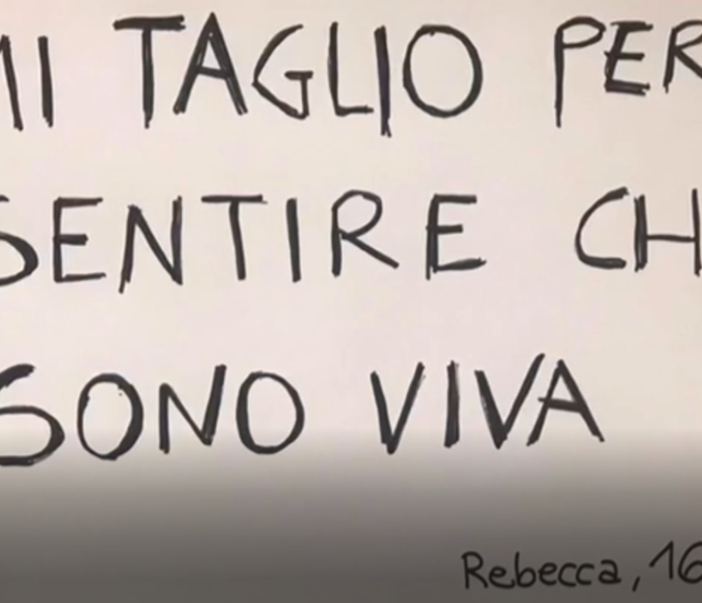 MI TAGLIO PER
SENTIRE CH
SONO VIVA
Rebecca, 16